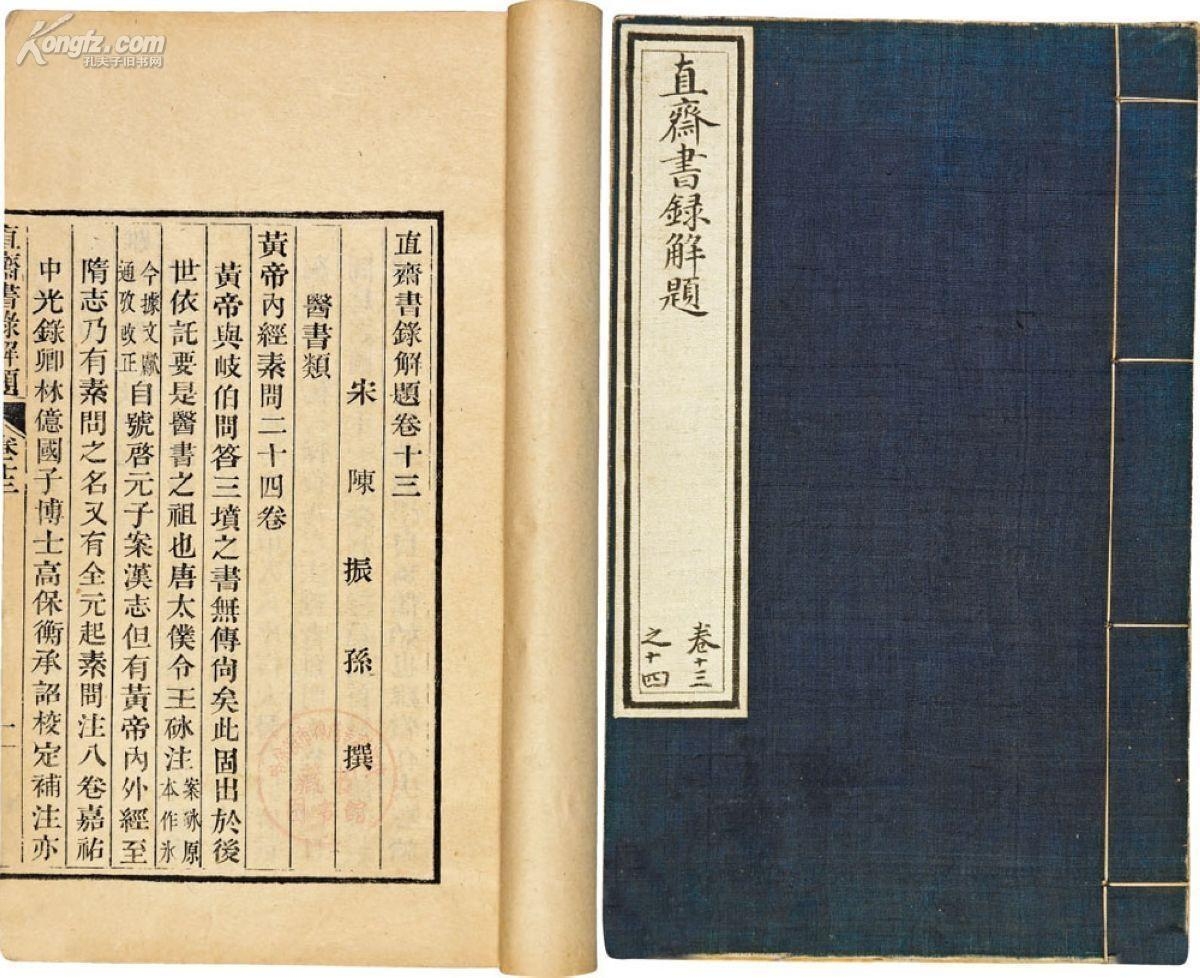 Kongfz.com
孔夫子旧书网
直齋書録解題
卷十三
之十四
直齋書錄解題卷十三
宋陳振孫撰
醫書類
黃帝內經素問二十四卷
黃帝與岐伯問答三墳之書無傳尙矣此固出於後
世依託要是醫書之祖也唐太僕令王砅注案砅原本作氷
今據文獻通攷改正自號啓元子案漢志但有黃帝內外經至
隋志乃有素問之名又有全元起素問注八卷嘉祐
中光錄卿林億國子博士高保衡承詔校定補注亦
直齋書錄解題
卷十三
一